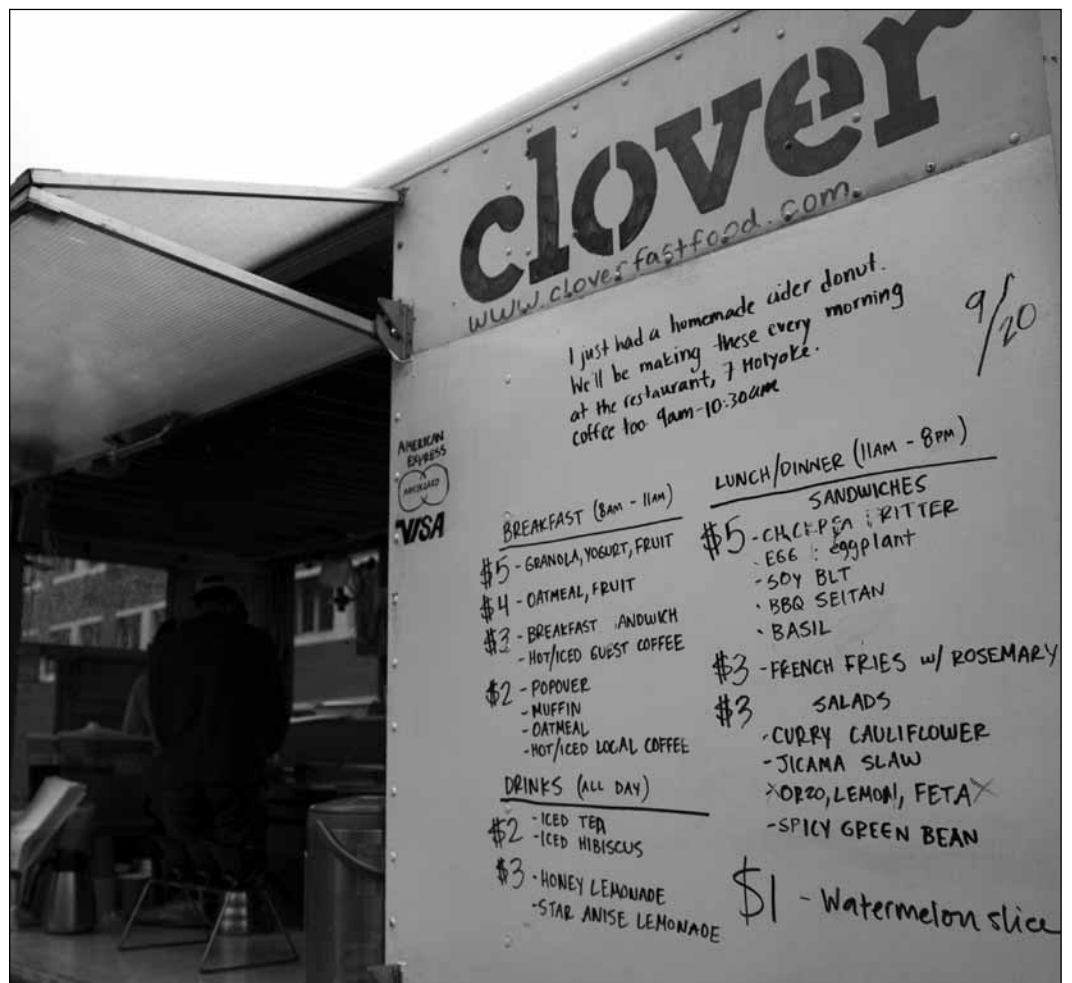 clover
www.cloverfastfood.com
I just had a homemade cider donut.
We'll be making these every morning
at the restaurant, 7 Holyoke.
coffee too 9am-10:30am
9/20
AMERICAN
EXPRESS
MASTERCARD
VISA
BREAKFAST (8AM - 11AM)
$5 - GRANOLA, YOGURT, FRUIT
$4 - OATMEAL, FRUIT
$3 - BREAKFAST ANDWICH
- HOT/ICED GUEST COFFEE
$2 - POPOVER
- MUFFIN
- OATMEAL
- HOT/ICED LOCAL COFFEE
DRINKS (ALL DAY)
$2 - ICED TEA
- ICED HIBISCUS
$3 - HONEY LEMONADE
- STAR ANISE LEMONADE
LUNCH/DINNER (11AM - 8PM)
SANDWICHES
$5 - RITTER
· EGG : eggplant
- SOY BLT
· BBQ SEITAN
· BASIL
$3 - FRENCH FRIES w/ ROSEMARY
$3 SALADS
- CURRY CAULIFLOWER
- JICAMA SLAW
XORZO, LEMON, FETAX
- SPICY GREEN BEAN
$1 - Watermelon slice